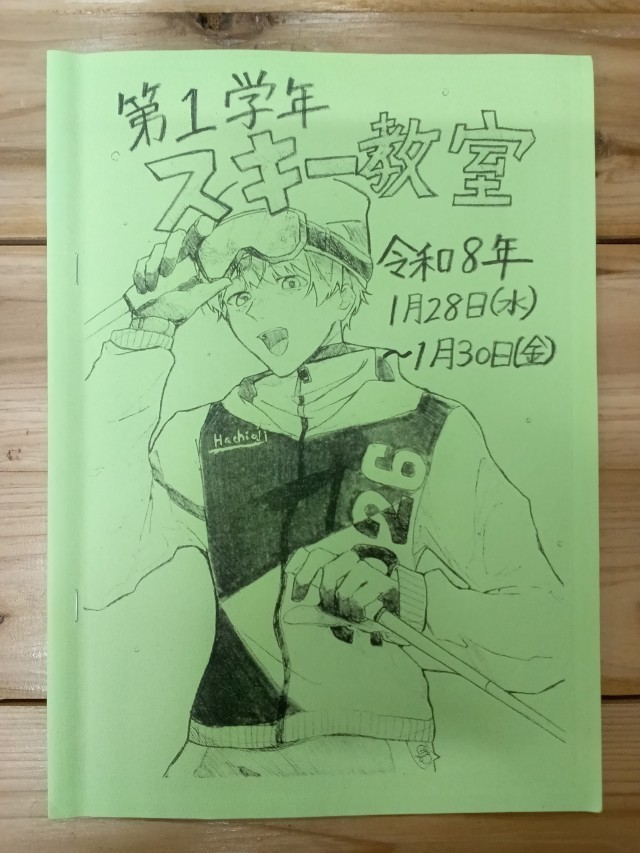 第1学年
スキー教室
令和8年
1月28日(水)
～1月30日(金)
Hachioji
2026